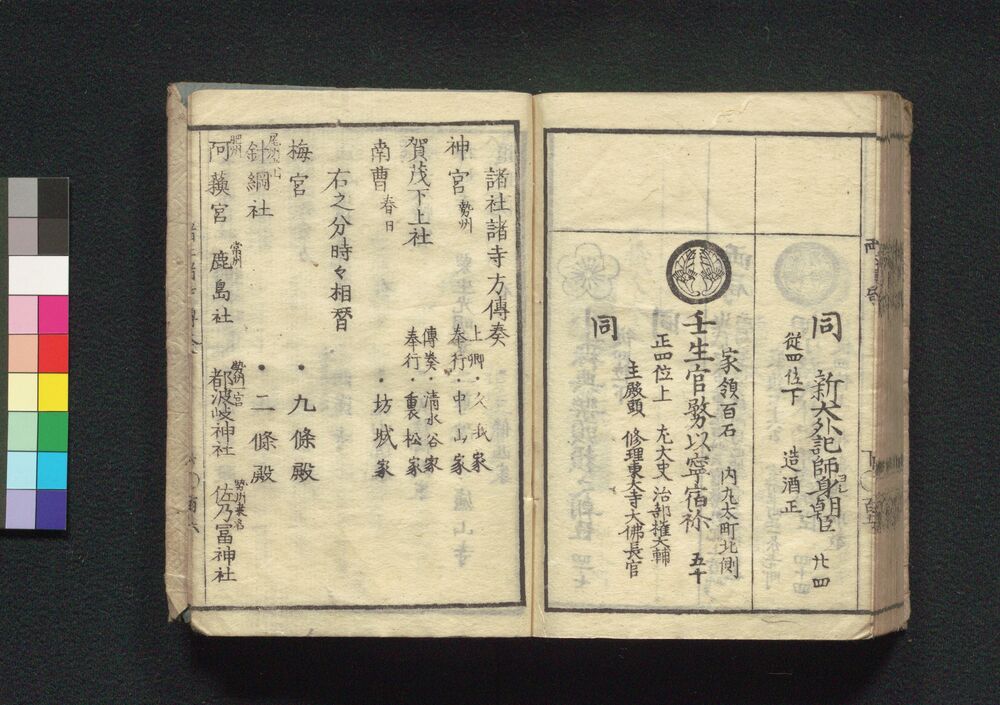 同　新大外記師身朝臣　廿四
従四位下　造酒正
家領百石　内丸太町北側
壬生官務以寧宿祢　五十
正四位上　左大史　治部権大輔
主殿頭　修理東大寺大佛長官
同
諸社諸寺方傳奏
神宮　勢州　上卿・久我家
奉行・中山家
賀茂下上社　傳奏・清水谷家
奉行・裏松家
南曹　春日　・坊城家
右之分時々相替
梅宮　・九條殿
針綱社　・二條殿
阿蘓宮　常州　鹿島社　勢州一宮　都波岐神社　勢州桑名　佐乃冨神社